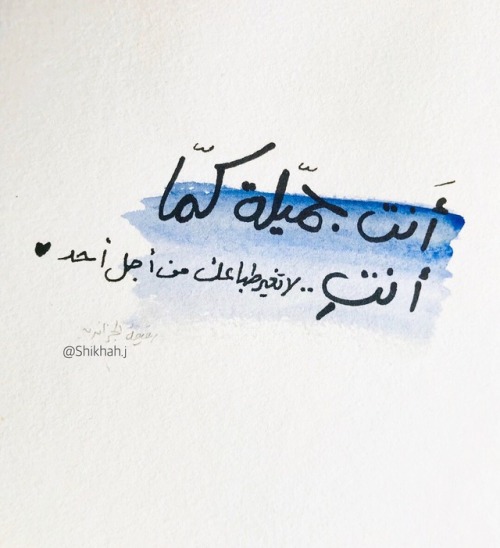 أَنت جمّيلة كمّا
أنتِ .. لا تغير طباعك من أجل أحد ♥
@Shikhah.j